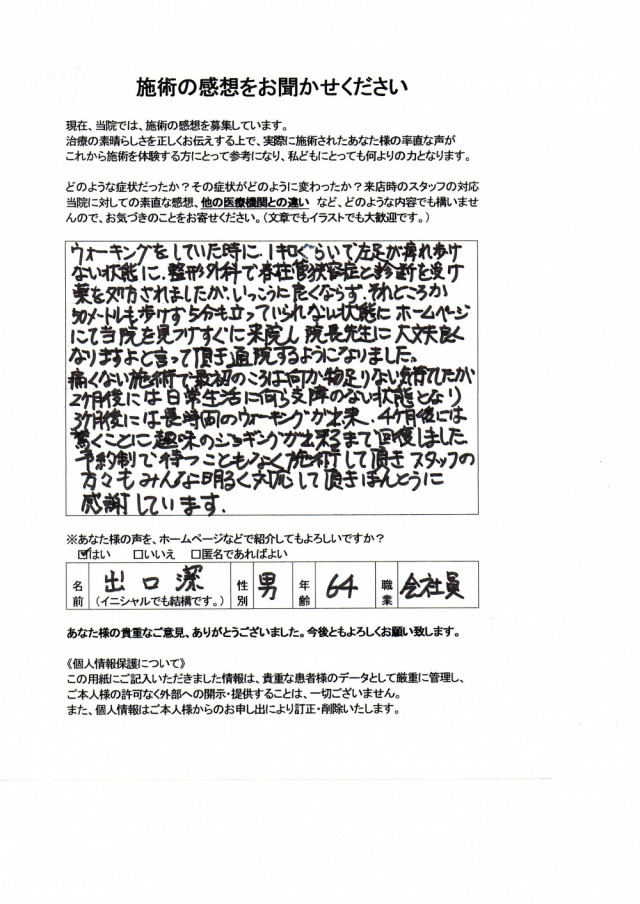 施術の感想をお聞かせください
現在、当院では、施術の感想を募集しています。
治療の素晴らしさを正しくお伝えする上で、実際に施術されたあなた様の率直な声が
これから施術を体験する方にとって参考になり、私どもにとっても何よりの力となります。
どのような症状だったか？その症状がどのように変わったか？来店時のスタッフの対応
当院に対しての素直な感想、他の医療機関との違い など、どのような内容でも構いませ
んので、お気づきのことをお寄せください。（文章でもイラストでも大歓迎です。）
ウォーキングをしていた時に、1キロぐらいで左足が痺れ歩け
ない状態に、整形外科で脊柱管狭窄症と診断を受け
薬を処方されましたが、いっこうに良くならず、それどころか
50メートルも歩けず5分も立っていられない状態に ホームページ
にて当院を見つけすぐに来院し 院長先生に 大丈夫良く
なりますよと言って頂き通院するようになりました。
痛くない施術で最初のころは何か物足りない気持でたが
2ヶ月後には日常生活に何ら支障のない状態となり
3ヶ月後には長時間のウォーキングが出来、4ヶ月後には
驚くことに趣味のジョギングが出来るまで回復しました
予約制で待つこともなく施術して頂きスタッフの
方々もみんな明るく対応して頂きほんとうに
感謝しています。
※あなた様の声を、ホームページなどで紹介してもよろしいですか？
☑はい □いいえ □匿名であればよい
名前 出口潔 （イニシャルでも結構です。） 性別 男 年齢 64 職業 会社員
あなた様の貴重なご意見、ありがとうございました。今後ともよろしくお願い致します。
《個人情報保護について》
この用紙にご記入いただきました情報は、貴重な患者様のデータとして厳重に管理し、
ご本人様の許可なく外部への開示・提供することは、一切ございません。
また、個人情報はご本人様からのお申し出により訂正・削除いたします。